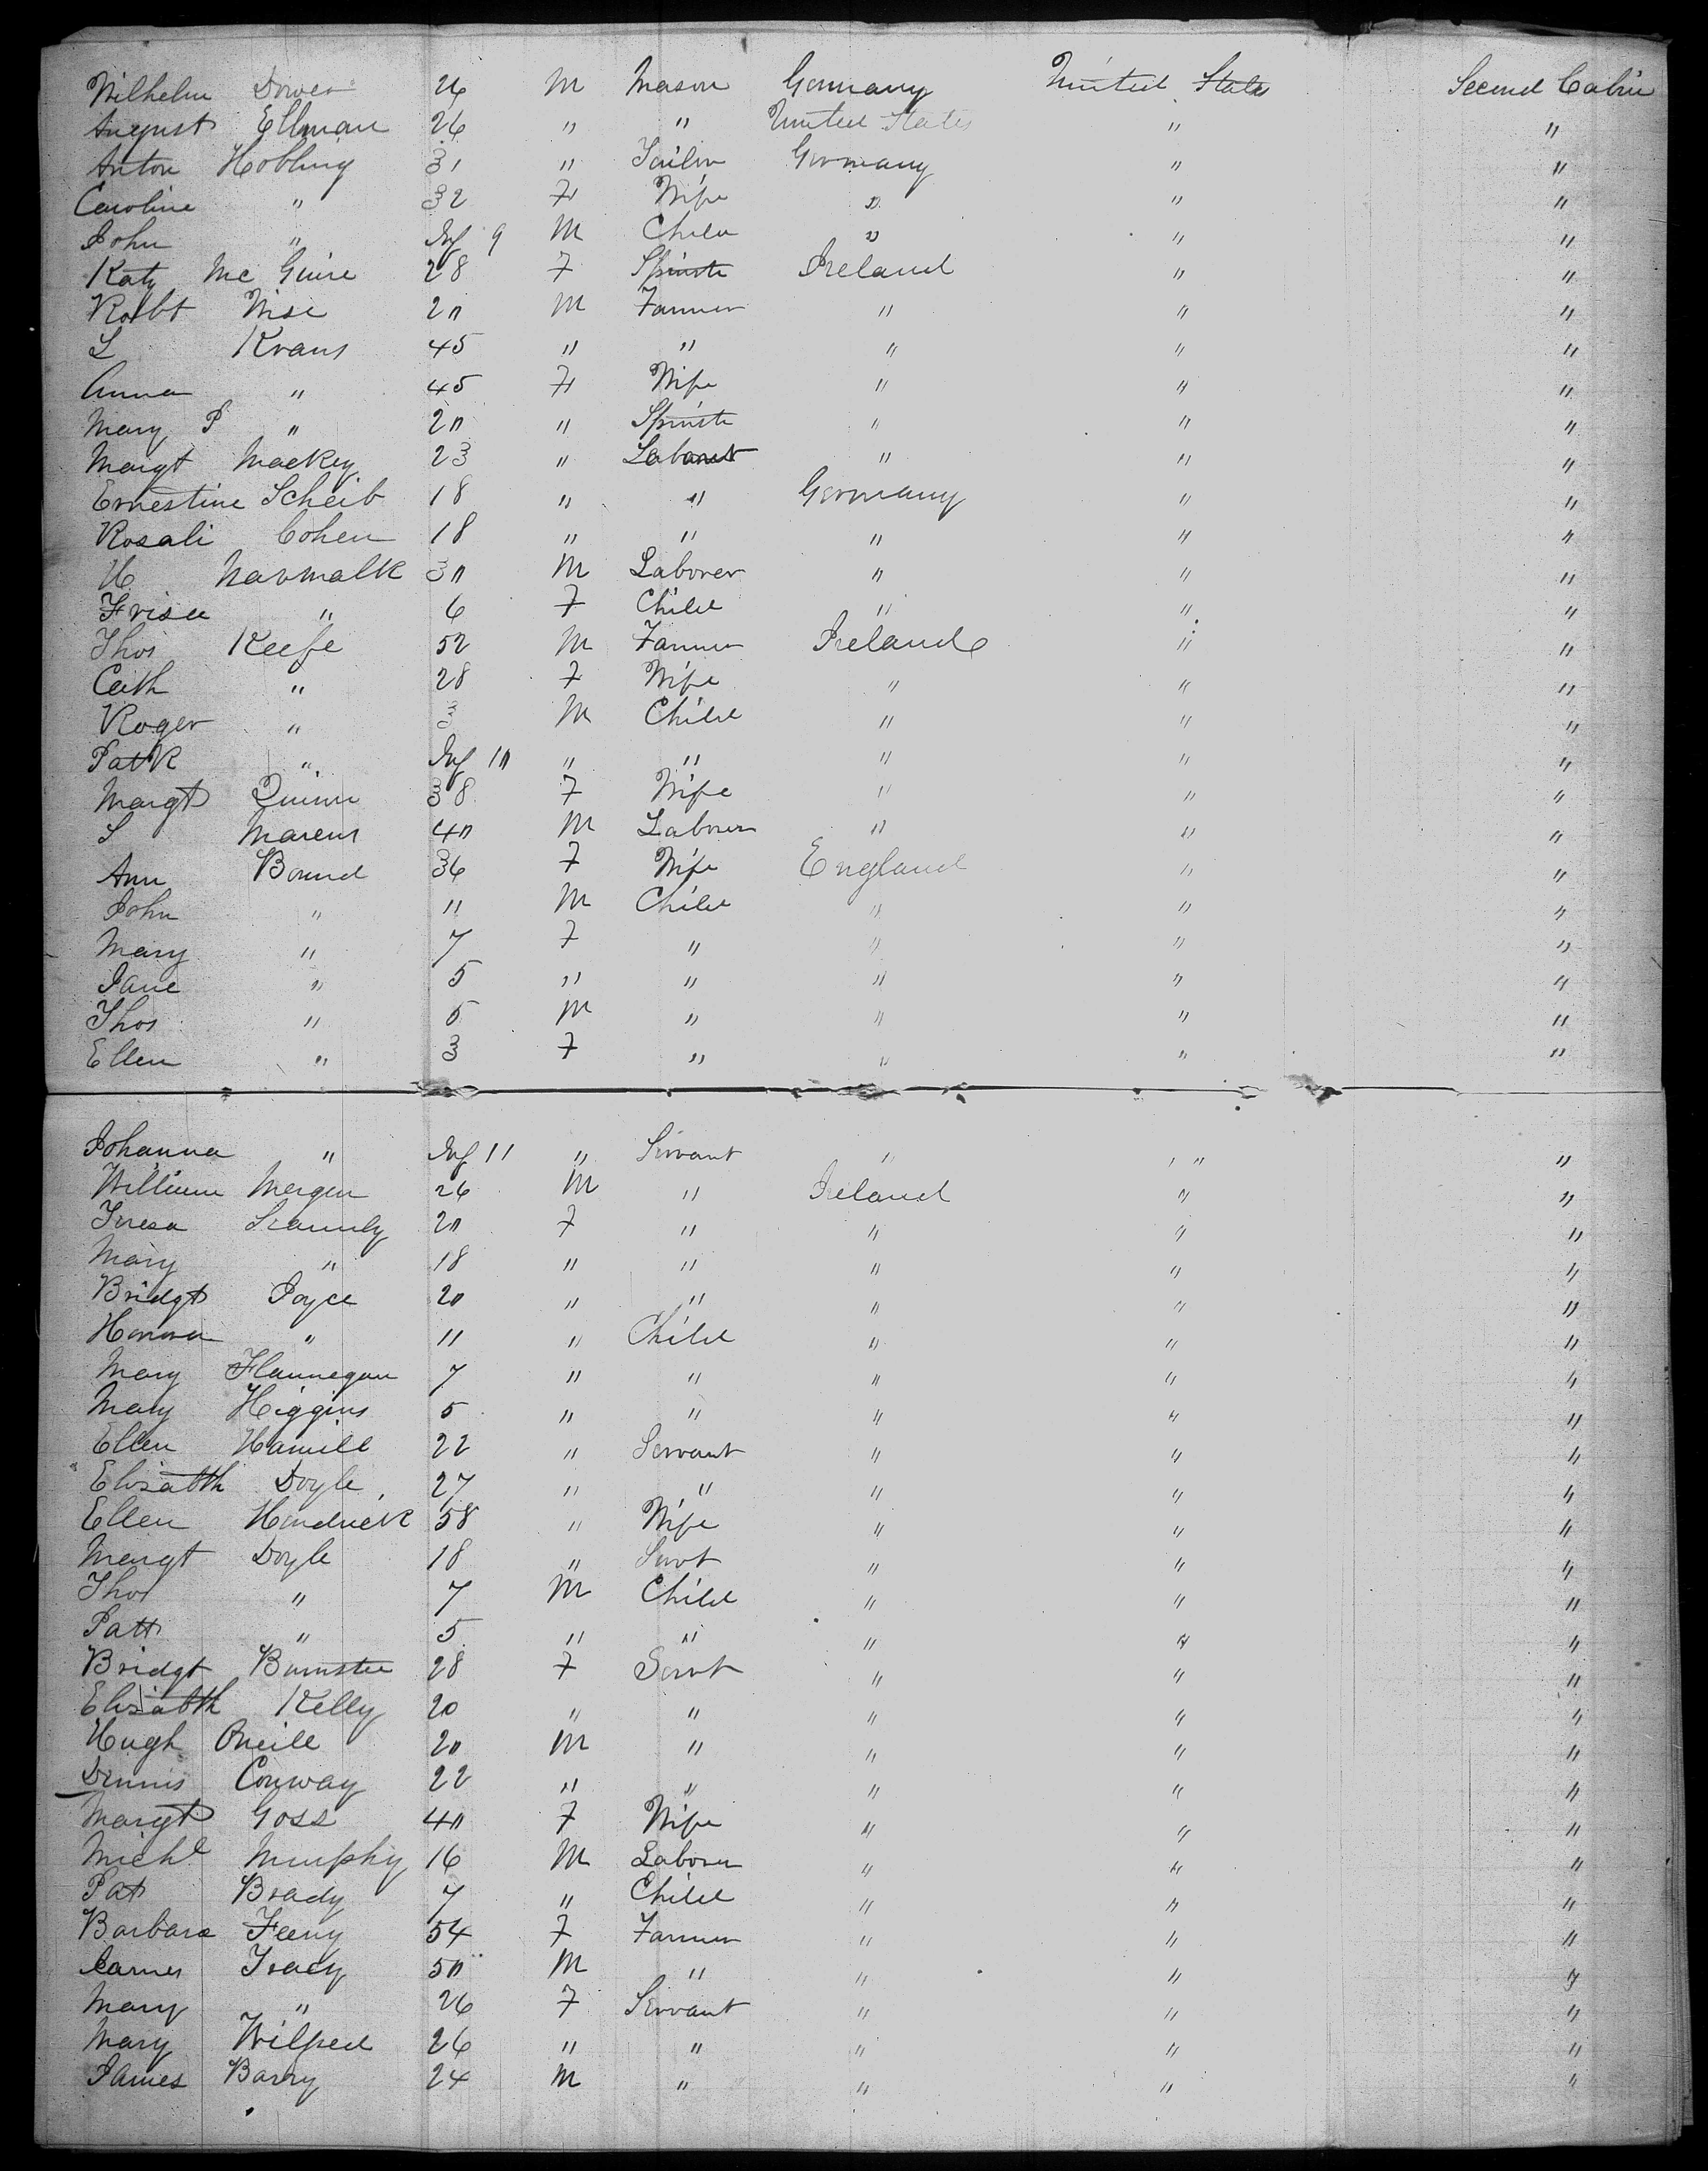 Wilhelm Dower 26 M Mason Germany United States Second Cabin
August Ellman 26 " " United States " "
Anton Hobbling 31 " Tailor Germany " "
Caroline " 32 F Wife " " "
John " Inf 9 M Child " " "
Katy Mc Guire 28 F Spinste Ireland " "
Robt Wise 20 M Farmer " " "
L Kraus 45 " " " " "
Anna " 45 F Wife " " "
Mary P " 20 " Spinste " " "
Margt Mackey 23 " " " "
Ernestine Scheib 18 " " Germany " "
Rosali Cohen 18 " " " " "
H Navmalk 30 M Laborer " " "
Frisa " 6 F Child " " "
Thos Keefe 52 M Farmer Ireland " "
Cath " 28 F Wife " " "
Roger " 3 M Child " " "
Patk " Inf 10 " " " " "
Margt Quinn 38 F Wife " " "
S Marcus 40 M Laborer " " "
Ann Bound 36 F Wife England " "
John " 11 M Child " " "
Mary " 7 F " " " "
Jane " 5 " " " " "
Thos " 5 M " " " "
Ellen " 3 F " " " "
Johanna " Inf 11 " Servant " " "
William Mergen 26 M " Ireland " "
Teresa 20 F " " " "
Mary " 18 " " " " "
Bridgt Joyce 20 " " " " "
Honora " 11 " Child " " "
Mary Flannegan 7 " " " " "
Mary Higgins 5 " " " " "
Ellen Hamill 22 " Servant " " "
Elisabth Doyle 27 " " " " "
Ellen Hendrick 58 " Wife " " "
Margt Doyle 18 " Servt " " "
Thos " 7 M Child " " "
Patt " 5 " " " " "
Bridgt 28 F Servt " " "
Elisabth Kelly 20 " " " " "
Hugh Oneill 20 M " " " "
Dennis Conway 22 " " " " "
Margt Goss 40 F Wife " " "
Michl Murphy 16 M Laborer " " "
Pat Brady 7 " Child " " "
Barbara Feeny 54 F Farmer " " "
James Tracy 50 M " " " "
Mary " 26 F Servant " " "
Mary Wilfred 26 " " " " "
James Barry 24 M " " " "